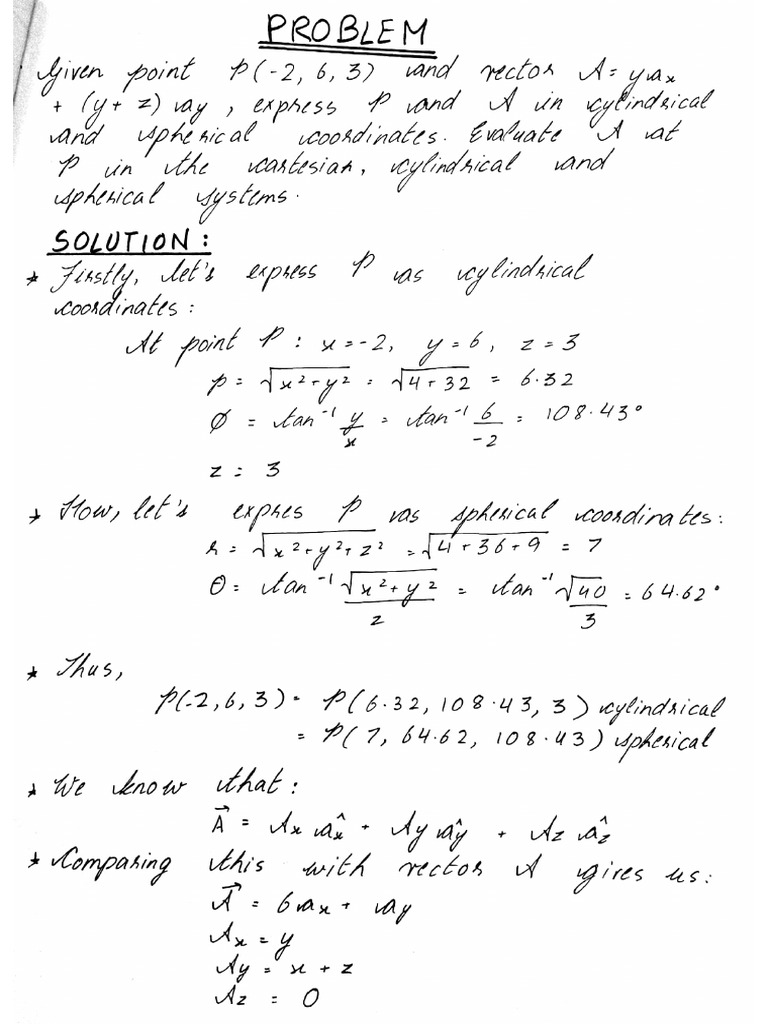 PROBLEM
Given point P(-2, 6, 3) and vector A = yax
+ (y + z) ay, express P and A in cylindrical
and spherical coordinates. Evaluate A at
P in the cartesian, cylindrical and
spherical systems.
SOLUTION:
* Firstly, let's express P as cylindrical
coordinates:
At point P: x = -2, y = 6, z = 3
p = √x²+y² = √4+32 = 6.32
Ø = tan⁻¹ y/x = tan⁻¹ 6/-2 = 108.43°
z = 3
* Now, let's expres P as spherical coordinates:
r = √x²+y²+z² = √4+36+9 = 7
θ = tan⁻¹ √x²+y²/z = tan⁻¹ √40/3 = 64.62°
* Thus,
P(-2, 6, 3) = P(6.32, 108.43, 3) cylindrical
= P(7, 64.62, 108.43) spherical
* We know that:
A⃗ = Ax âx + Ay ây + Az âz
* Comparing this with vector A gives us:
A⃗ = 6ax + ay
Ax = y
Ay = x + z
Az = 0